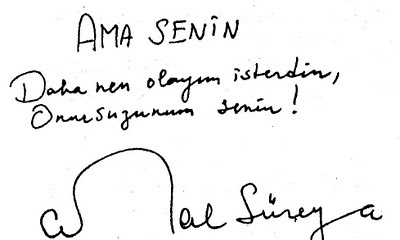 AMA SENİN
Daha nen olayım isterdin,
Onursuzunum senin!
Cemal Süreya